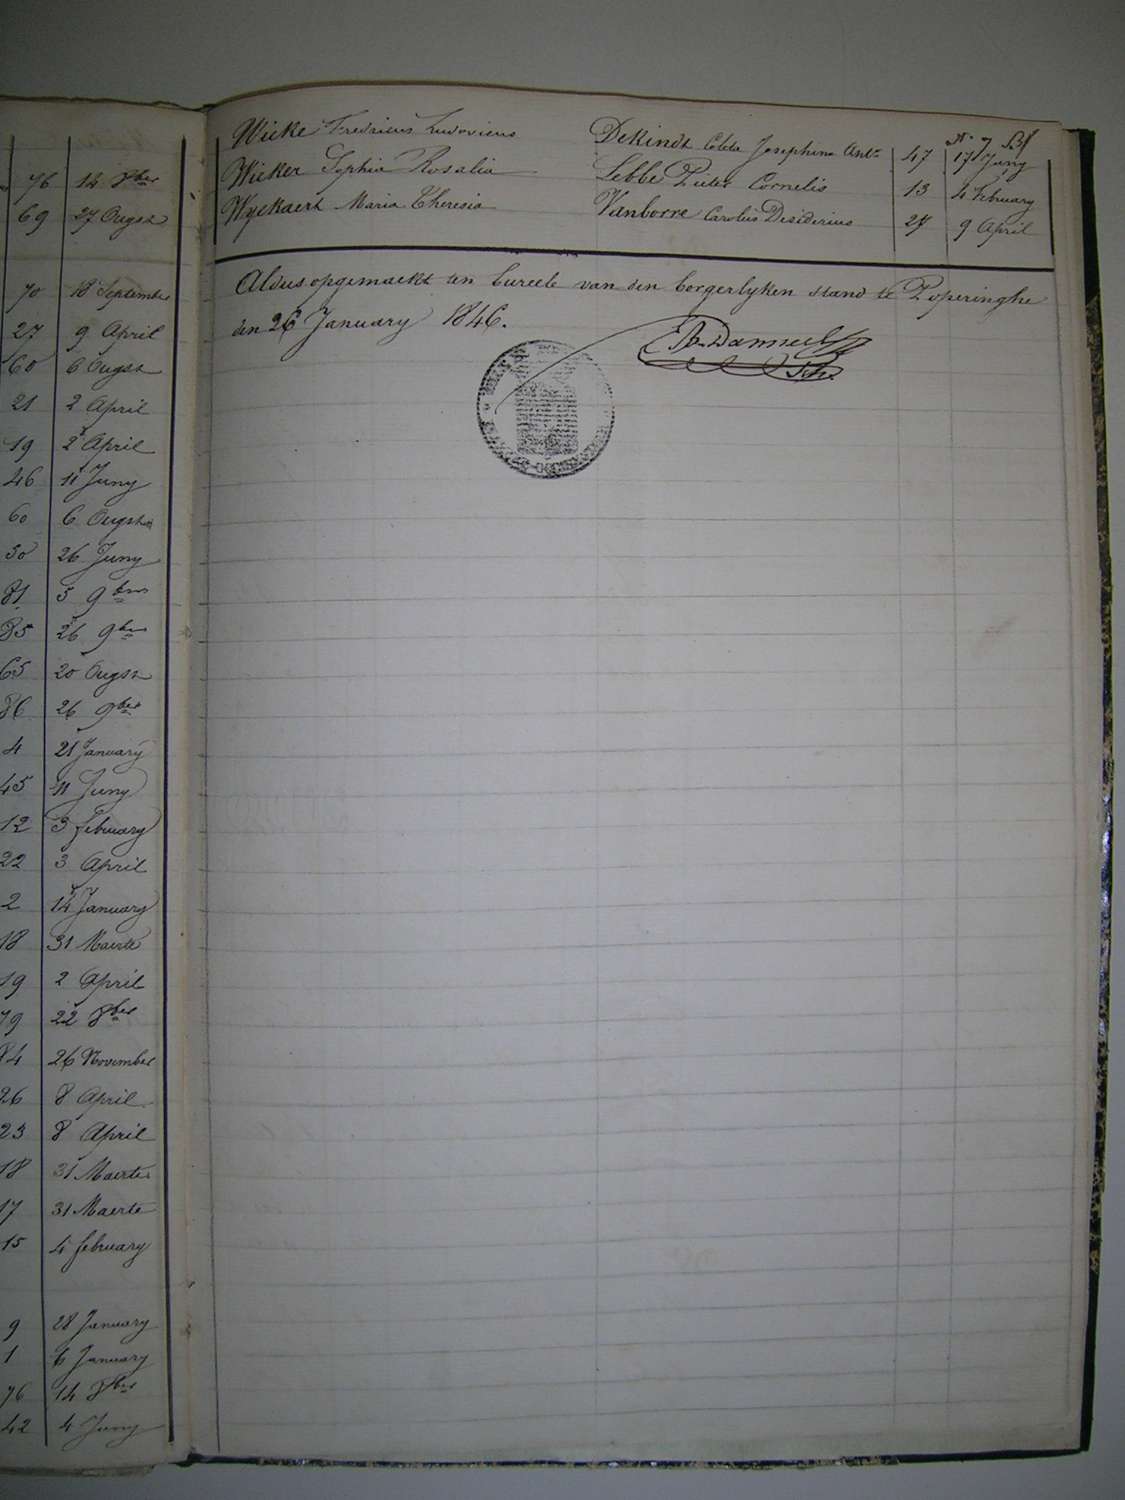 76 14 8ber
69 27 Ougst
70 18 September
27 9 April
60 6 Ougst
21 2 April
19 2 April
46 11 Juny
60 6 Ougst
30 26 Juny
81 5 9ber
85 26 9ber
65 20 Ougst
86 26 9ber
4 21 January
45 11 Juny
12 3 february
22 3 April
2 14 January
18 31 Maerte
19 2 April
79 22 8ber
84 26 November
26 8 April
23 8 April
18 31 Maerte
17 31 Maerte
15 4 february
9 28 January
1 6 January
76 14 8ber
42 4 Juny
Wicke Fredricus Ludovicus Dekindt Coleta Josephina Ant. 47 17 Juny
Wicker Sophia Rosalia Lebbe Pieter Cornelis 13 4 February
Wyckaert Maria Theresia Vanborre Carolus Desiderius 27 9 April
Aldus opgemaekt ten bureele van den borgerlyken stand te Poperinghe
den 26 January 1846.